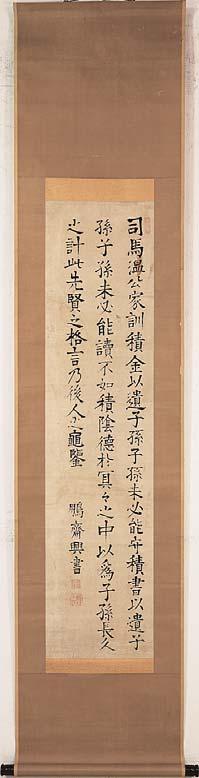 司馬溫公家訓積金以遺子孫子孫未必能守積書以遺子
孫子孫未必能讀不如積陰德於冥々之中以爲子孫長久
之計此先賢之格言乃後人之龜鑒
鵬齋興書